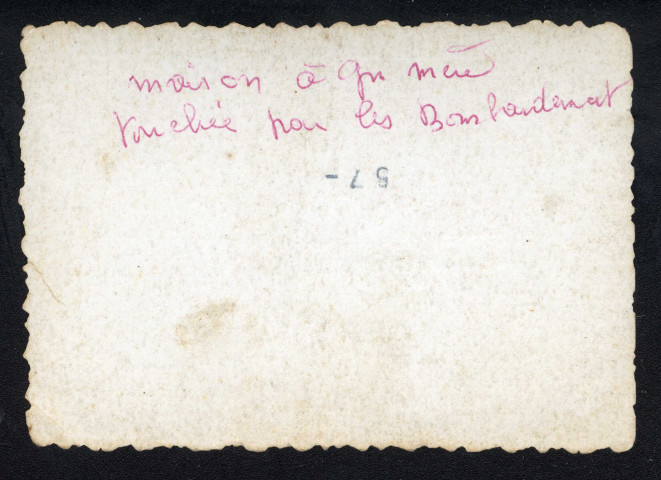 maison à Gd mère
touchée par les Bombardemat
57-